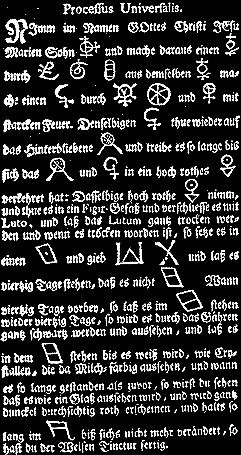 Processus Universalis.
NImm im Namen GOttes Christi JEsu
Marien Sohn und mache daraus einen
durch aus demselben ma-
che einen durch und mit
starcken Feuer. Denselbigen thue wieder auf
das Hinterbliebene und treibe es so lange bis
sich das und in ein hoch rothes
verkehret hat: Dasselbige hoch rothe nimm,
und thue es in ein Figir-Gefäß und verschliesse es mit
Luto, und laß das Lutum gantz trocken wer-
den und wenn es trocken worden ist, so setze es in
einen und gieb und laß es
viertzig Tage stehen, daß es nicht Wann
viertzig Tage vorbey, so laß es im stehen
wieder viertzig Tage, so wird es durch das Gähren
gantz schwartz werden und aussehen, und laß es
in dem stehen bis es weiß wird, wie Cry-
stallen, die da Milch-färbig aussehen, und wann
es so lange gestanden als zuvor, so wirst du sehen
daß es wie ein Glaß aussehen wird, und wird gantz
dunckel durchsichtig roth erscheinen, und halts so
lang im biß sichs nicht mehr verändert, so
hast du der Weisen Tinctur fertig.